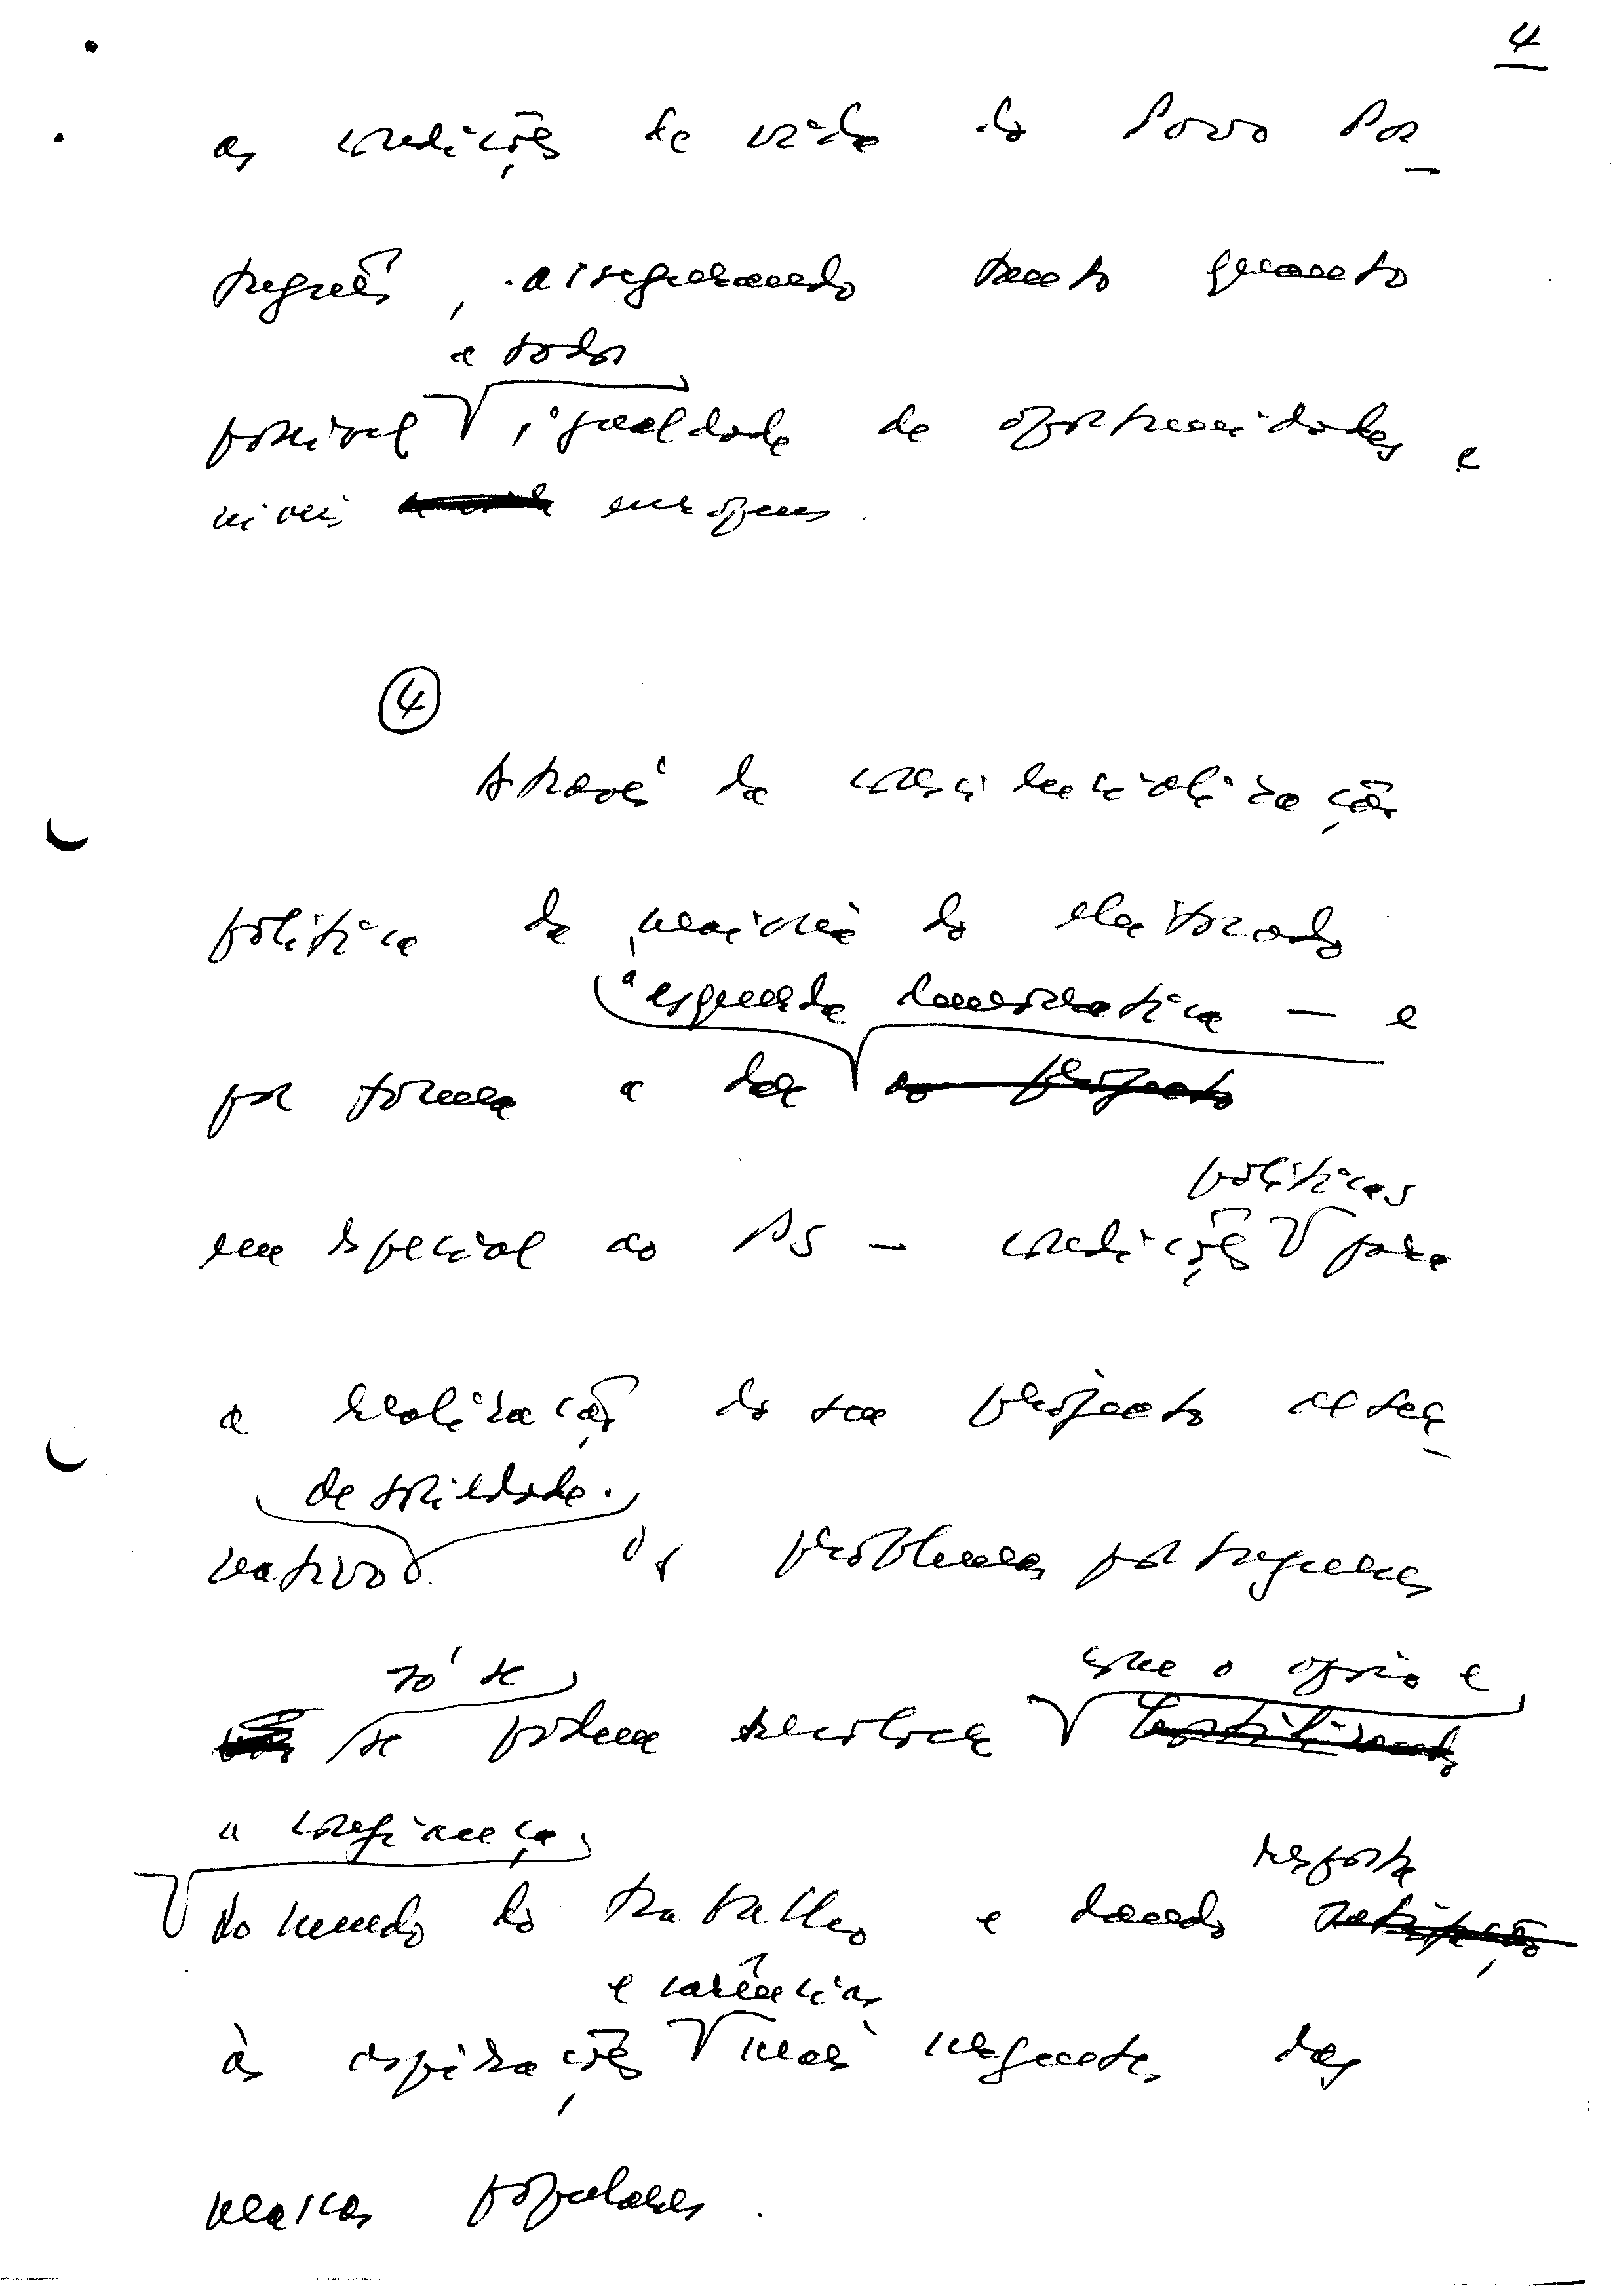 4
as condições de vida do Povo Por-
tuguês, assegurando tanto quanto
a todos
possível igualdade de oportunidades e
níveis europeus.
4
Através da consciencialização
política da maioria do eleitorado
à esquerda democrática — e
por forma a dar ao projecto
em especial ao PS — condições para
políticas
a realização do seu projecto alter-
de sociedade.
nativo. Os problemas portugueses
só se
se podem resolver
com o apoio e
a confiança
do mundo do trabalho e dando satisfação
resposta
e carências
às aspirações mais urgentes das
massas populares.